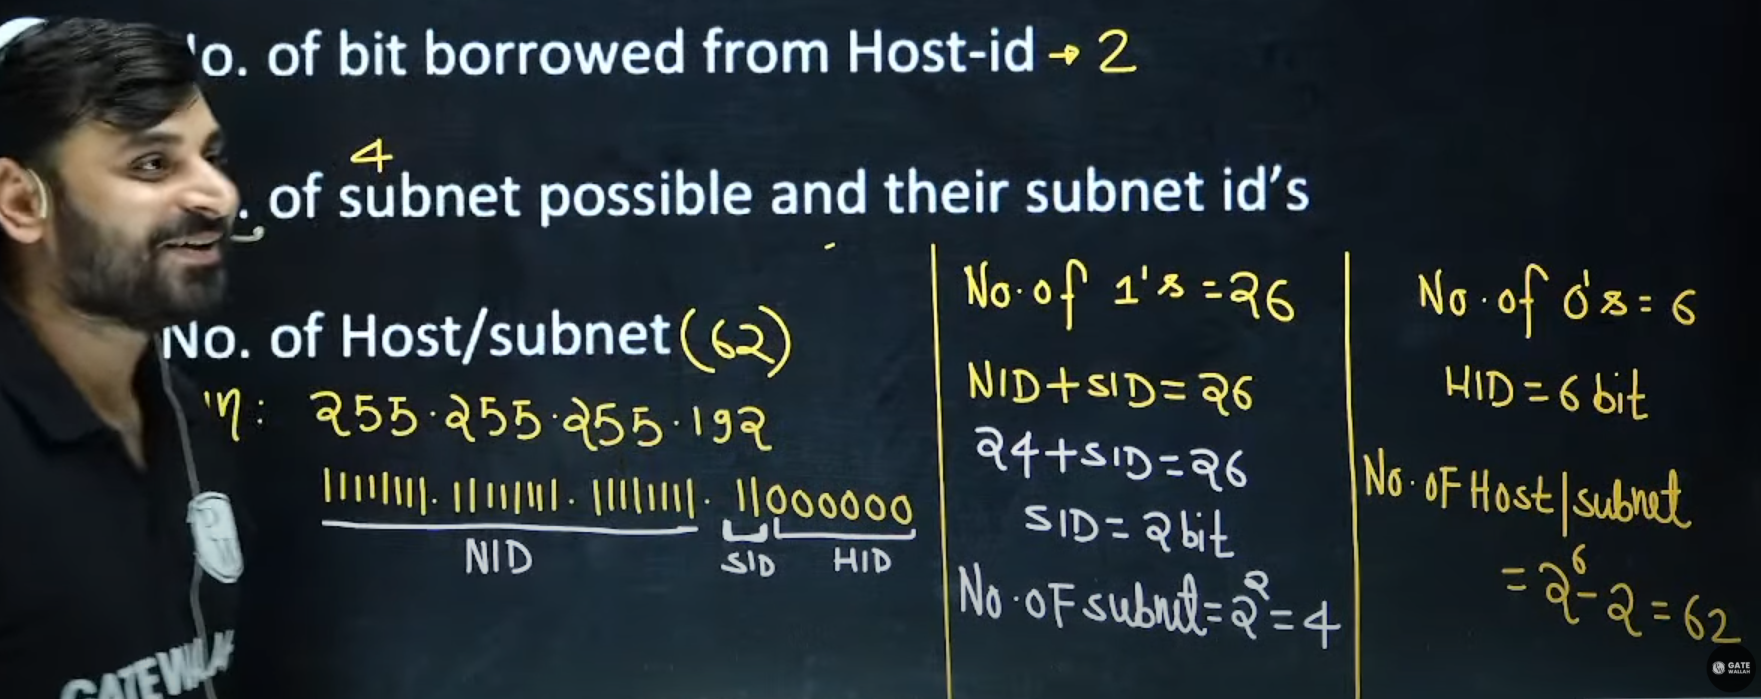 No. of bit borrowed from Host-id → 2
4
. of subnet possible and their subnet id's
No. of Host/subnet (62)
255.255.255.192
11111111.11111111.11111111.11000000
NID
SID
HID
No. of 1's = 26
NID+SID=26
24+SID=26
SID=2bit
No. of subnet=2²=4
No. of 0's=6
HID=6 bit
No. of Host/subnet
=2⁶-2=62
GATEWALLAH
GATE
WALLAH